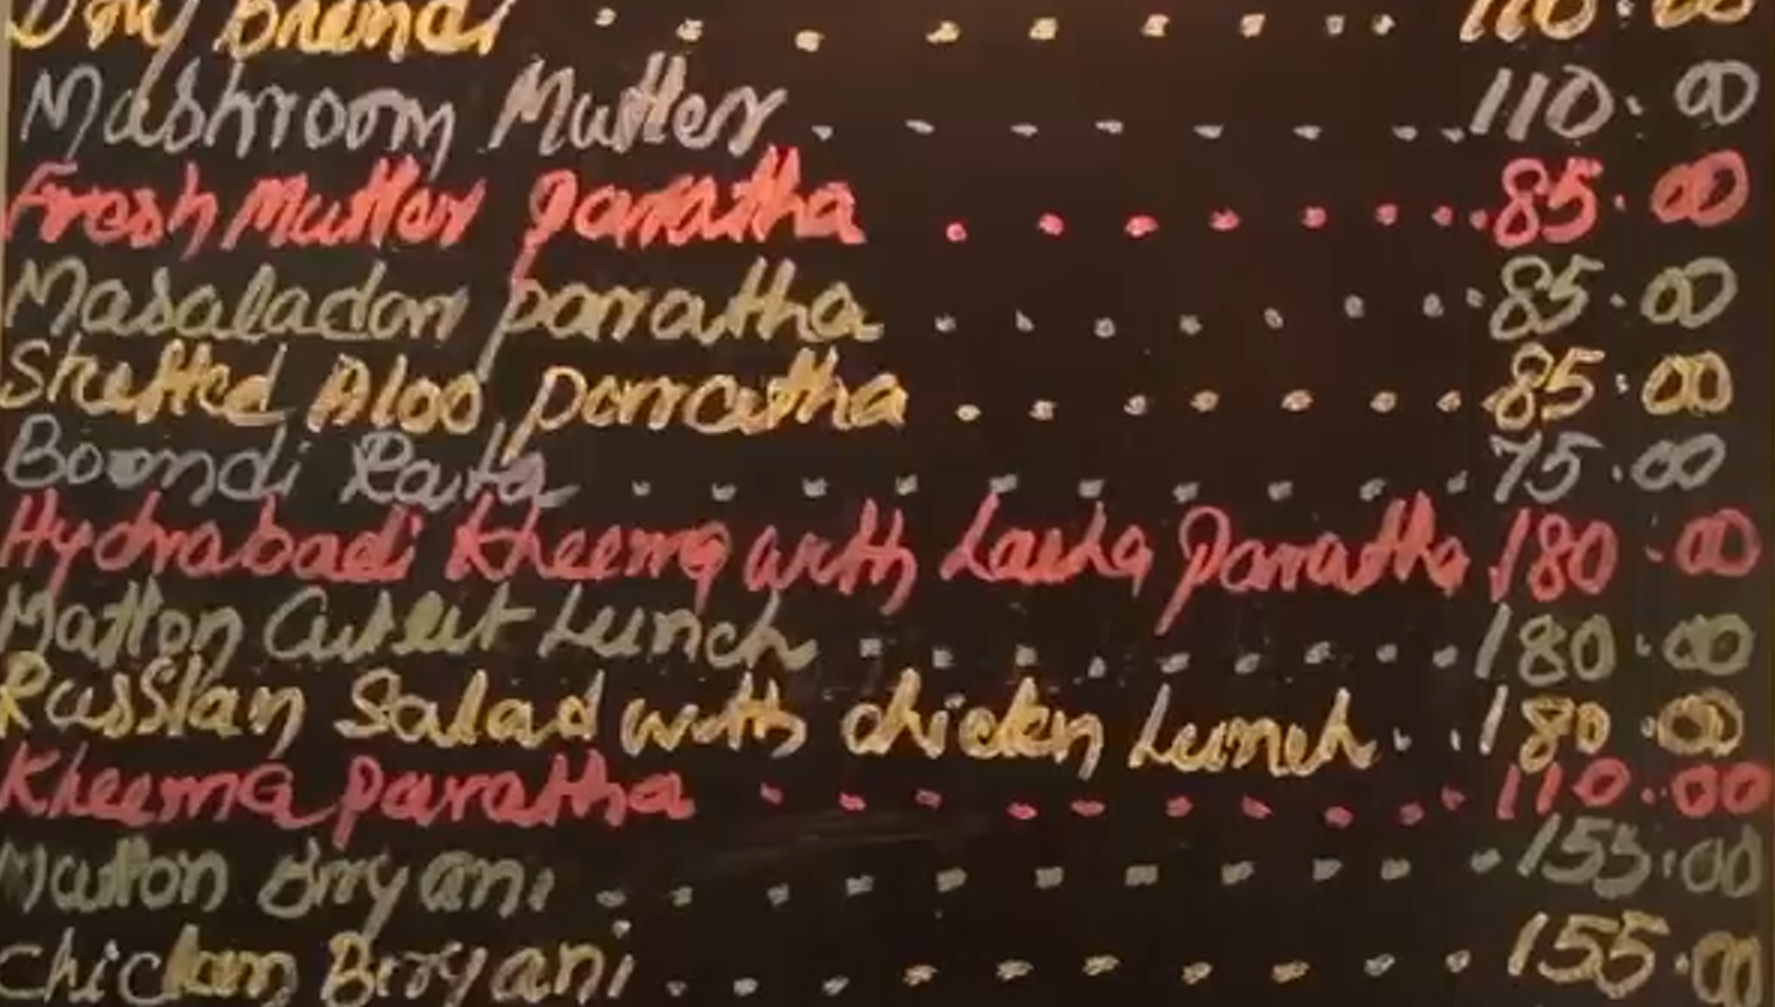 Dry Bhendi . . . . . . . . . 110.00
Mashroom Mutter . . . . . . . . 110.00
Fresh Mutter paratha . . . . . . . . 85.00
Masaladar parratha . . . . . . . . 85.00
Stuffed Aloo parratha . . . . . . . 85.00
Boondi Raita . . . . . . . . . . 75.00
Hydrabadi Kheema with Lacha Parratha 180.00
Matton Cutlet Lunch . . . . . . . . 180.00
Russian Salad with chicken Lunch . . 180.00
Kheema paratha . . . . . . . . . 110.00
Mutton Biryani . . . . . . . . . . 155.00
Chicken Biryani . . . . . . . . . 155.00